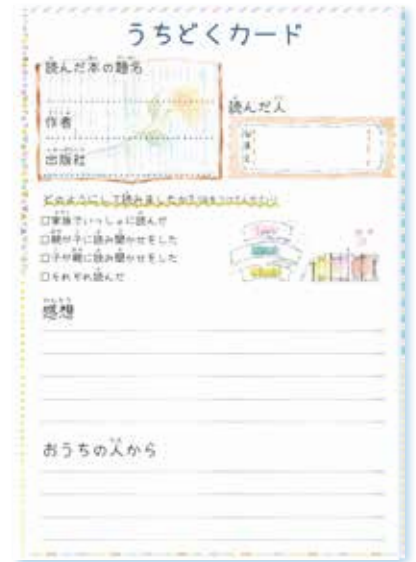 うちどくカード
読んだ本の題名
読んだ人
作者
出版社
どのようにして読みましたか?
□家族でいっしょに読んだ
□親が子に読み聞かせをした
□子が親に読み聞かせをした
□それぞれ読んだ
感想
おうちの人から